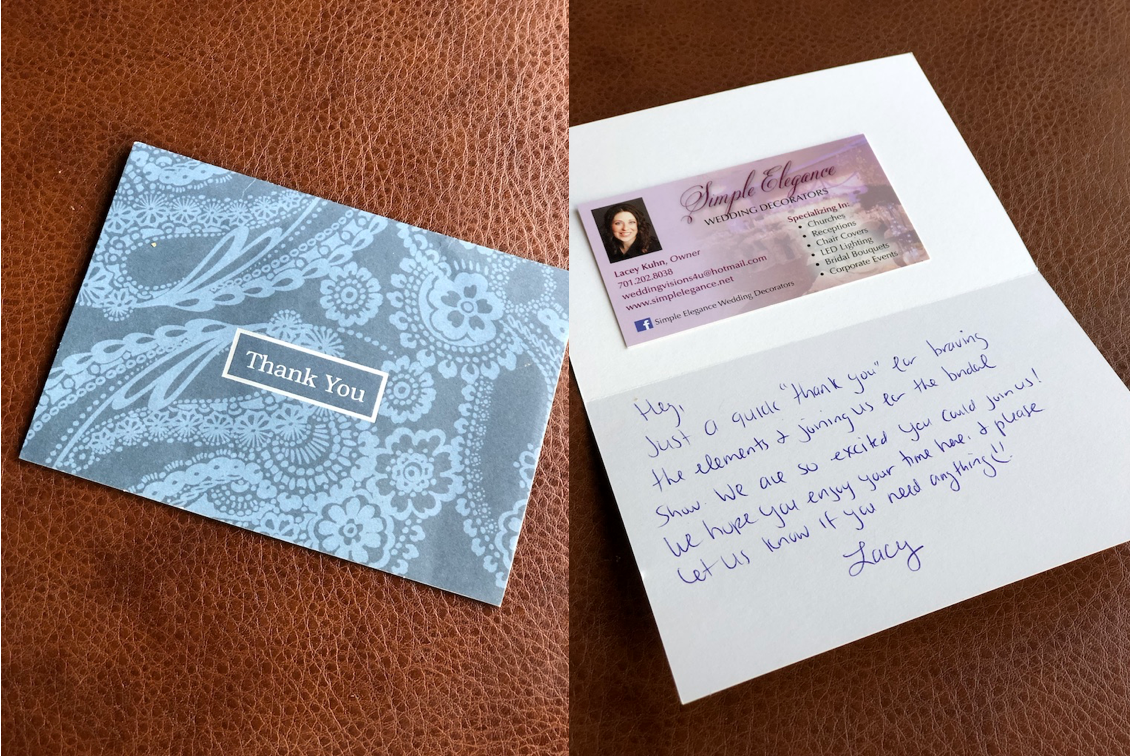 Thank You
Simple Elegance
WEDDING DECORATORS
Lacey Kuhn, Owner
701.202.8038
weddingvisions4u@hotmail.com
www.simplelegance.net
f Simple Elegance Wedding Decorators
Specializing In:
• Churches
• Receptions
• Chair Covers
• LED Lighting
• Bridal Bouquets
• Corporate Events
Hey,
Just a quick "thank you" for braving
the elements & joining us for the bridal
show. We are so excited you could join us!
We hope you enjoy your time here, & please
let us know if you need anything!!
Lacy